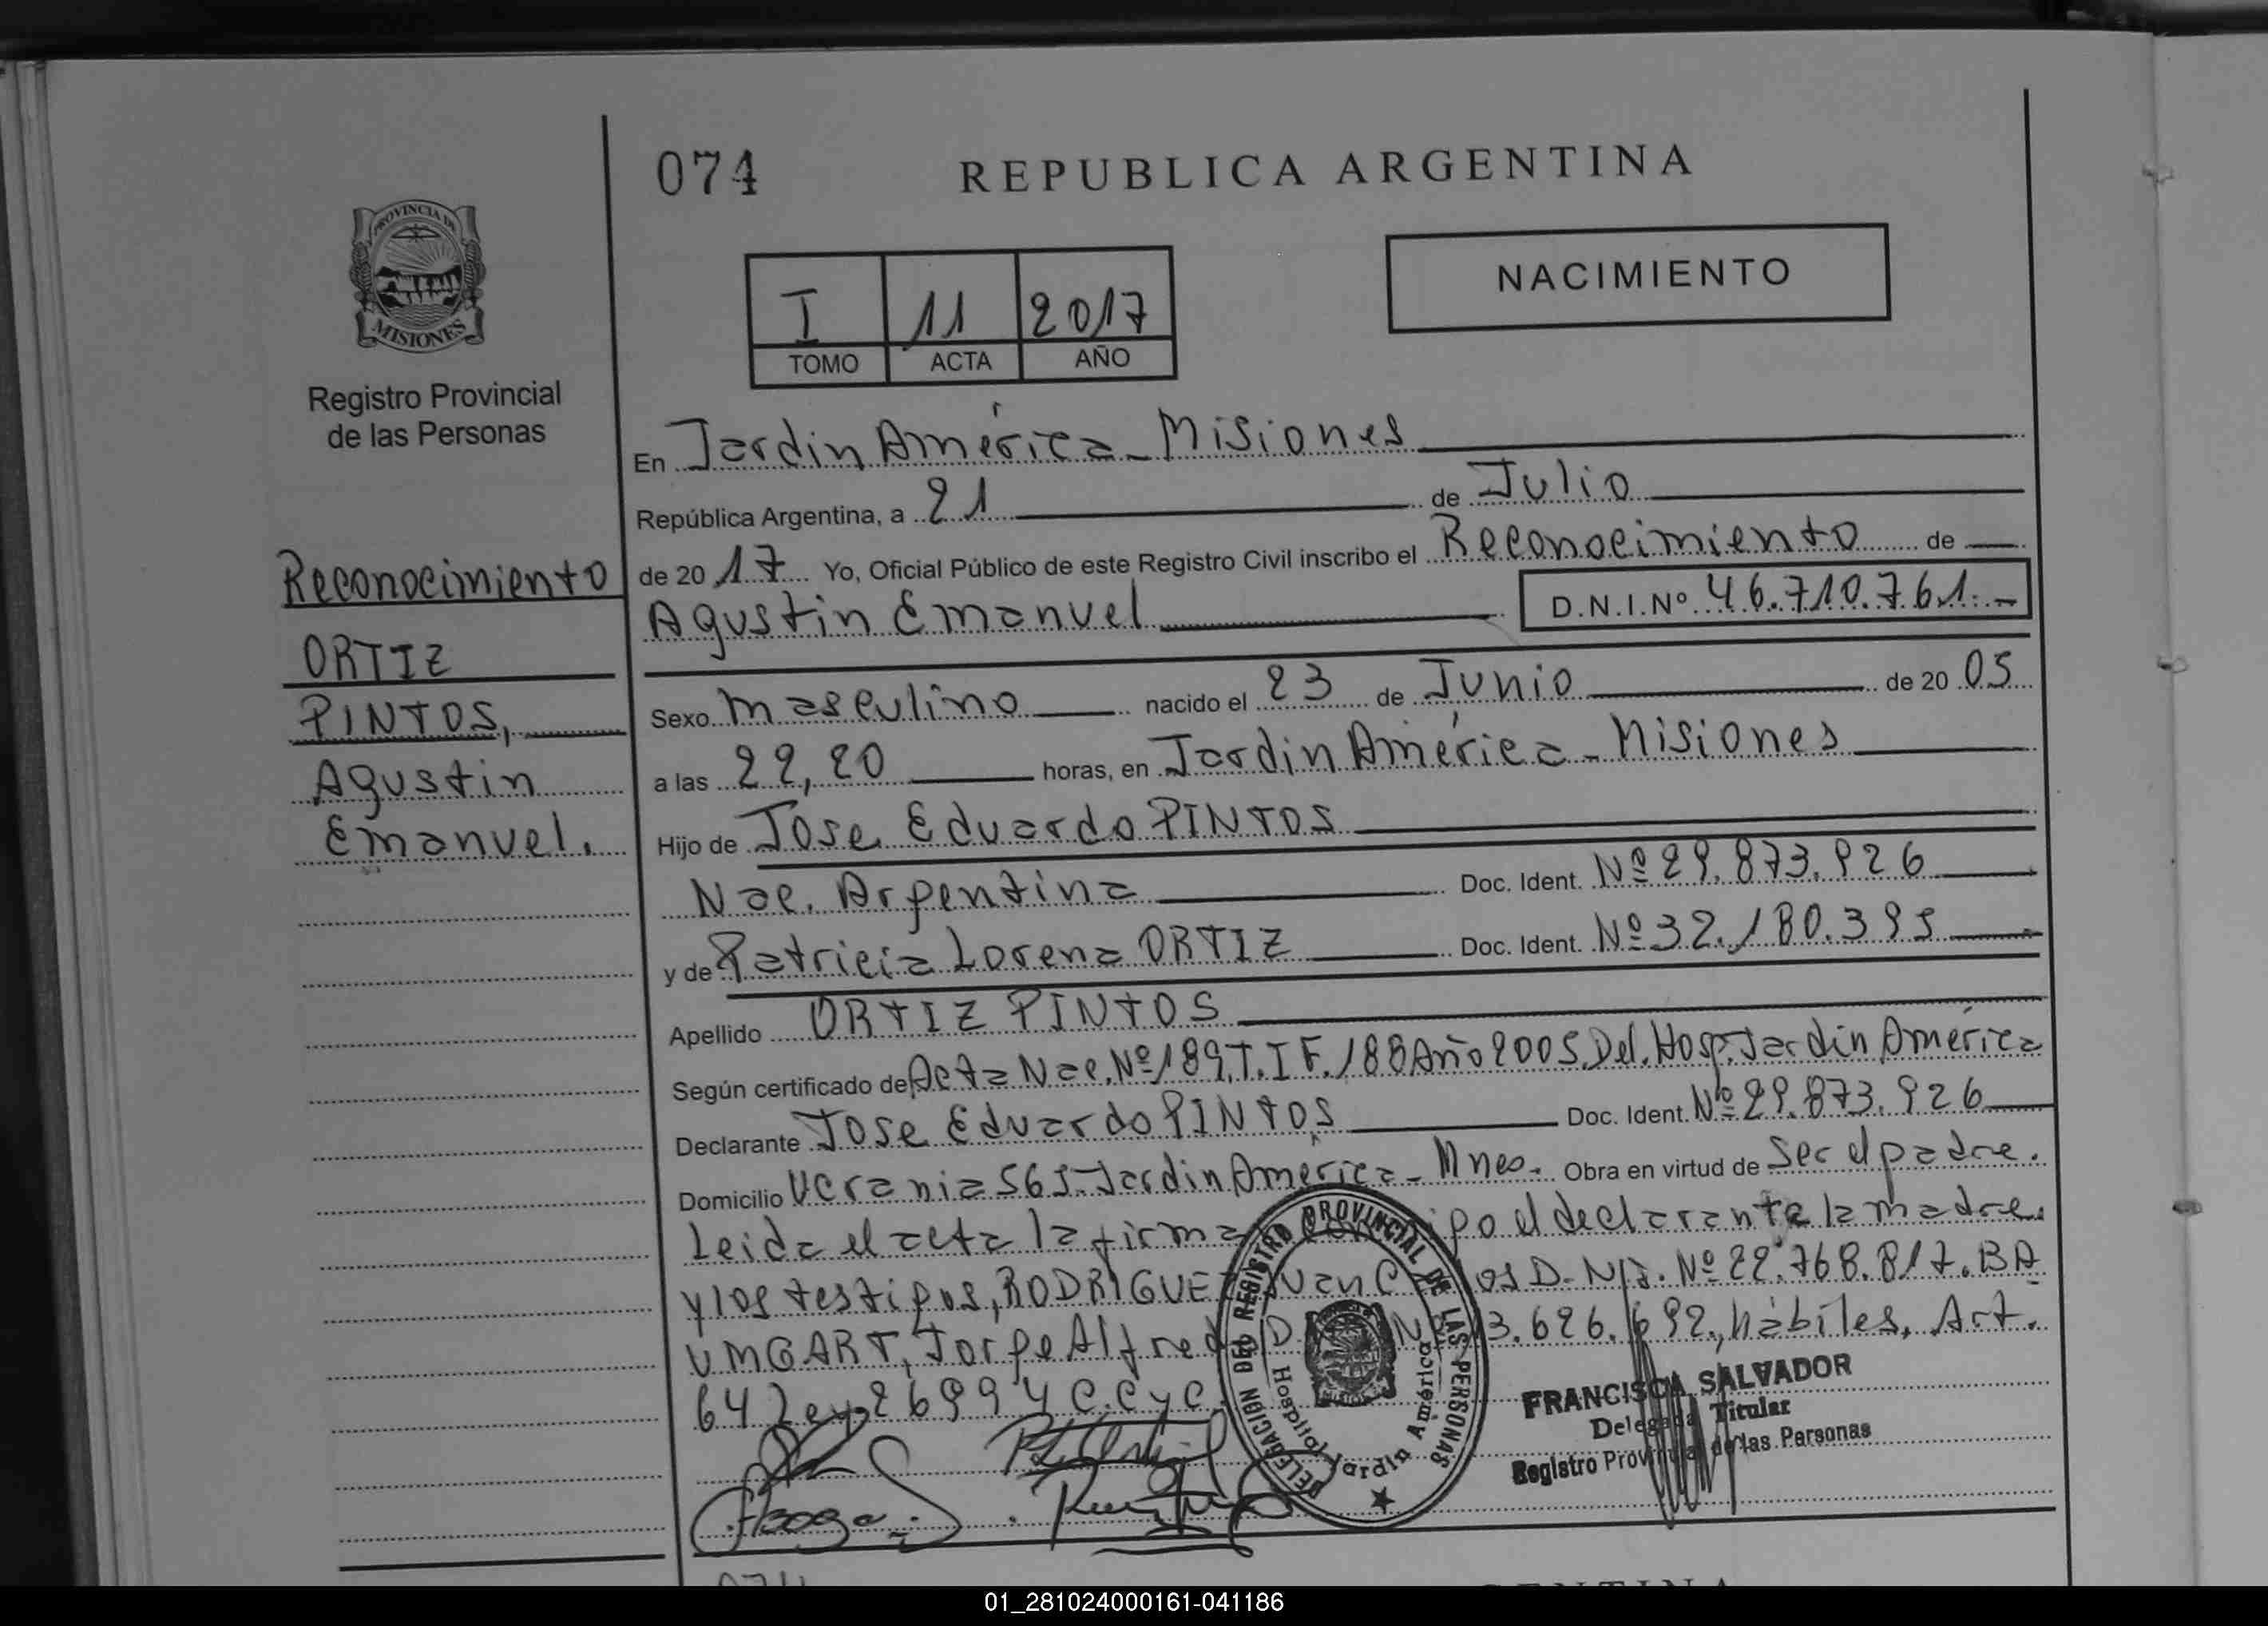 074
REPUBLICA ARGENTINA
PROVINCIA DE
MISIONES
Registro Provincial
de las Personas
I 11 2017
TOMO ACTA AÑO
NACIMIENTO
Reconocimiento
ORTIZ
PINTOS,
Agustin
Emanuel.
En Jardin América - Misiones
República Argentina, a 21 de Julio
de 2017 Yo, Oficial Público de este Registro Civil inscribo el Reconocimiento de
Agustin Emanuel D.N.I.Nº 46.710.761.-
Sexo masculino nacido el 23 de Junio de 2005
a las 22,20 horas, en Jardin América - Misiones
Hijo de Jose Eduardo PINTOS
Nac. Argentina Doc. Ident. Nº 29.873.926
y de Patricia Lorena ORTIZ Doc. Ident. Nº 32.180.395
Apellido ORTIZ PINTOS
Según certificado de Acta Nac. Nº 189, T. I F. 188 Año 2005 Del. Hosp. Jardin América
Declarante Jose Eduardo PINTOS Doc. Ident. Nº 29.873.926
Domicilio Ucrania 565 - Jardin América - Mnes. Obra en virtud de ser el padre.
Leida el acta la firma el declarante la madre.
y los testigos, RODRIGUEZ Juan D.N.I. Nº 22.768.817. BA
UMGART, Jorge Alfredo 3.626.692, hábiles, Art.
64 Ley 26994 C.C y C.
DELEGACION DEL REGISTRO PROVINCIAL DE LAS PERSONAS
Hospital Jardín América
FRANCISCA SALVADOR
Delegada Titular
Registro Provincial de las Personas
01_281024000161-041186